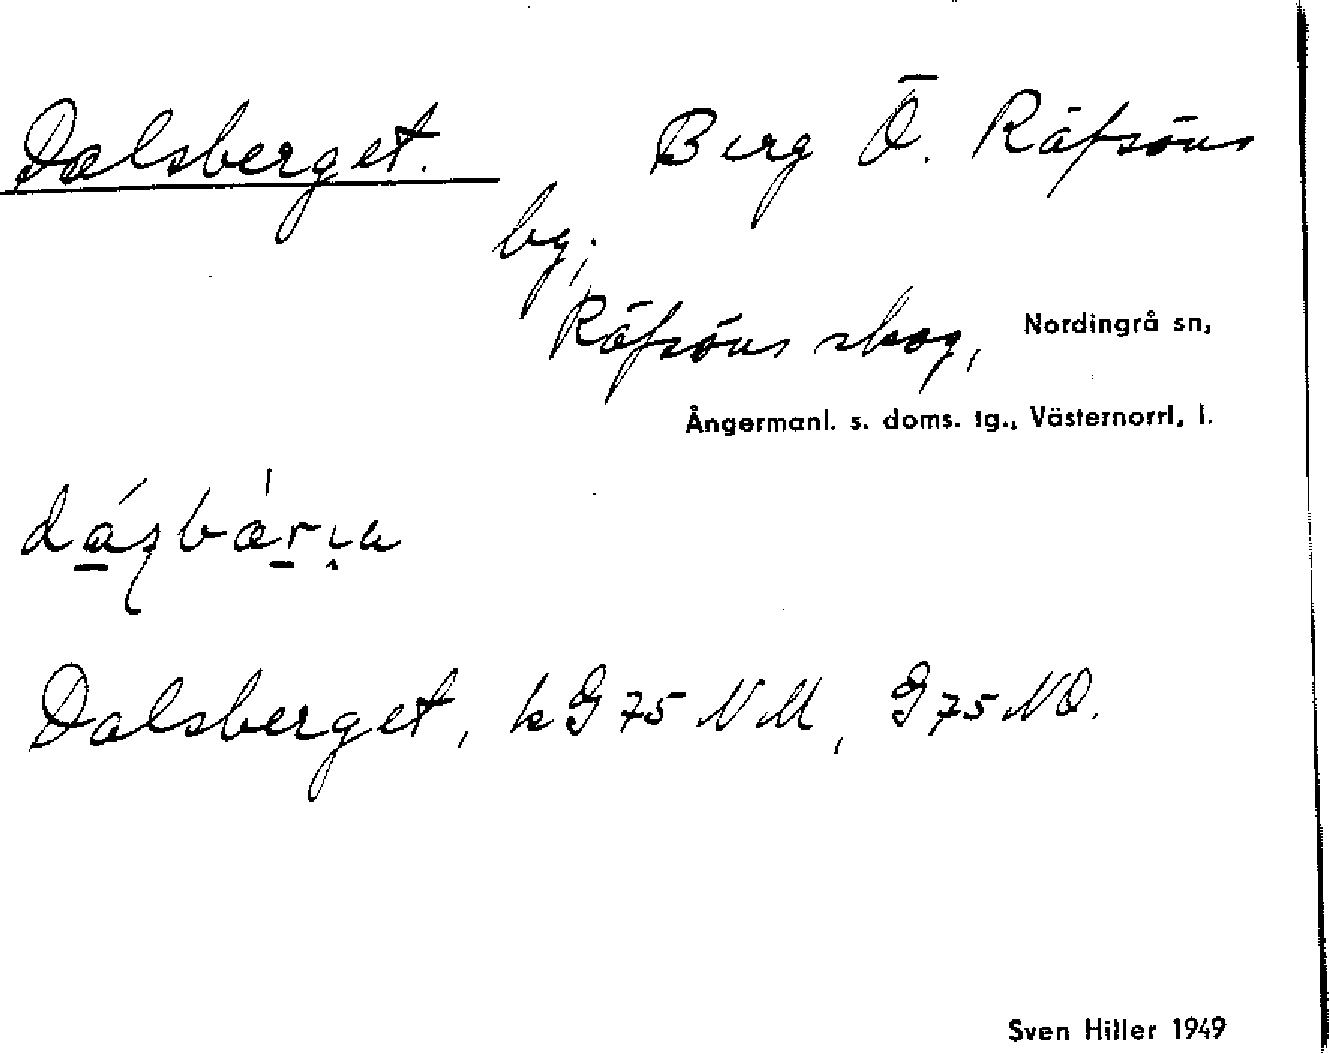 Dalsberget. Berg Ö. Räfsöns
by;
Räfsöns skog, Nordingrå sn,
Ångermanl. s. doms. tg., Västernorrl. l.
Dalsberget, kG75NM, G75NO.
Sven Hiller 1949